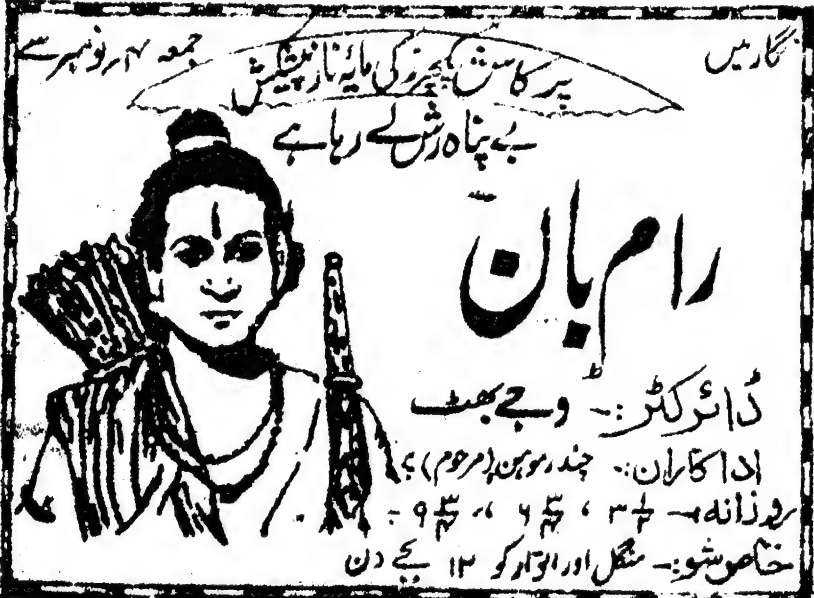 نگار میں
جمعہ ۴ نومبر سے
پرکاش پکچرز کی مایۂ ناز پیشکش
بے پناہ رش لے رہا ہے
رام بان
ڈائرکٹر:- وجے بھٹ
اداکاران:- چندر موہن (مرحوم)
روزانہ:- ۳ ۱/۲ ، ۶ ۳/۴ ، ۹ ۳/۴
خاص شو:- منگل اور اتوار کو ۱۲ بجے دن